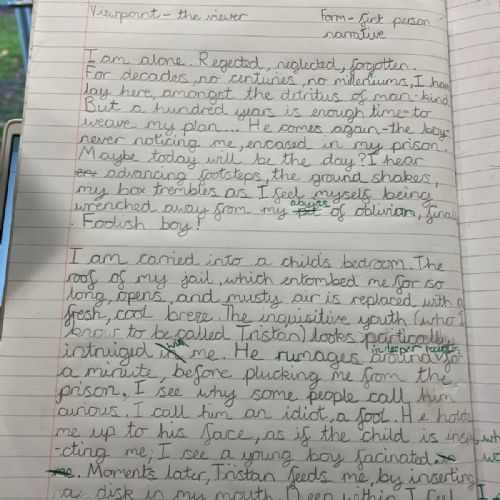 Viewpoint - the viewer Form - first person
narrative
I am alone. Regected, neglected, forgotten.
For decades, no centuries, no milleniums, I hav
lay here, amongst the detritus of man-kind.
But a hundred years is enough time to
weave my plan... He comes again - the boy-
never noticing me, encased in my prison.
Maybe today will be the day? I hear
advancing footsteps, the ground shakes,
my box trembles as I feel myself being
wrenched away from my abyss of oblivion, final
. Foolish boy!
I am carried into a childs bedroom. The
roof of my jail, which entombed me for so
long, opens, and musty air is replaced with a
fresh, cool breze. The inquisitive youth (who I
know to be called Tristan) looks particually
intruiged in me. He rumages around for
in deeper
a minute, before plucking me from the
prison. I see why some people call him
curious. I call him an idiot, a fool. He holds
me up to his face, as if the child is inspe
-cting me; I see a young boy facinated
me. Moments later, Tristan feeds me, by inserting
a disk in my mouth. Deep within I feel